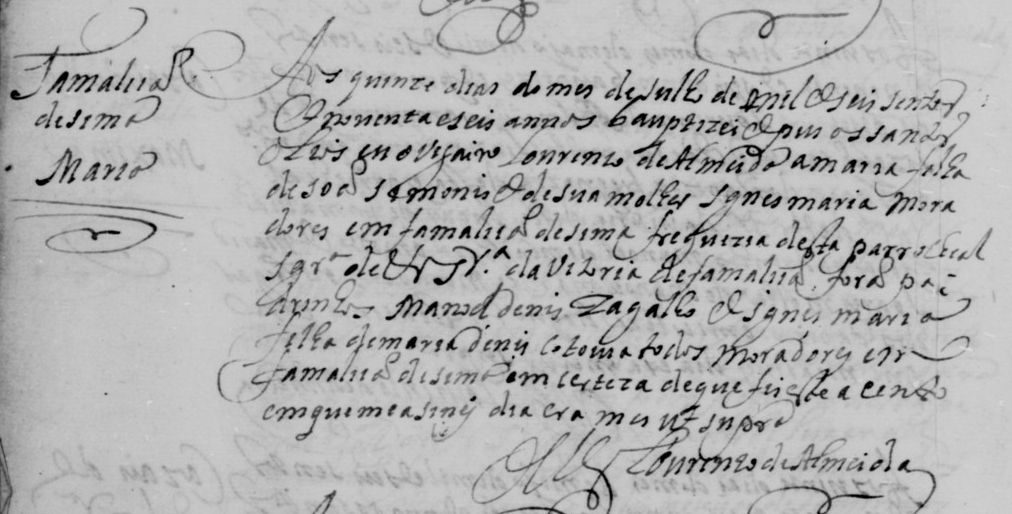 Famalica
de sima
Maria
Aos quinze dias do mes de Julho de mil e seis sentos
e noventa e seis annos bauptizei e puz os santos
olios eu o vigairo Lourenco de Almeida a maria filha
de Joã simonis e de sua molher Ignes maria Mora
dores em famalicã de sima freguezia desta parrochial
Igrª de N Srª da Vitoria de famalicã. forã pa
drinhos Manoel denis Zagallo e Ignes maria
filha de maria denis cotovia todos Moradores em
famalicã de sima em certeza de que fis este a cento
em que me asiney dia era mes ut supra
Lourenco de Almeida